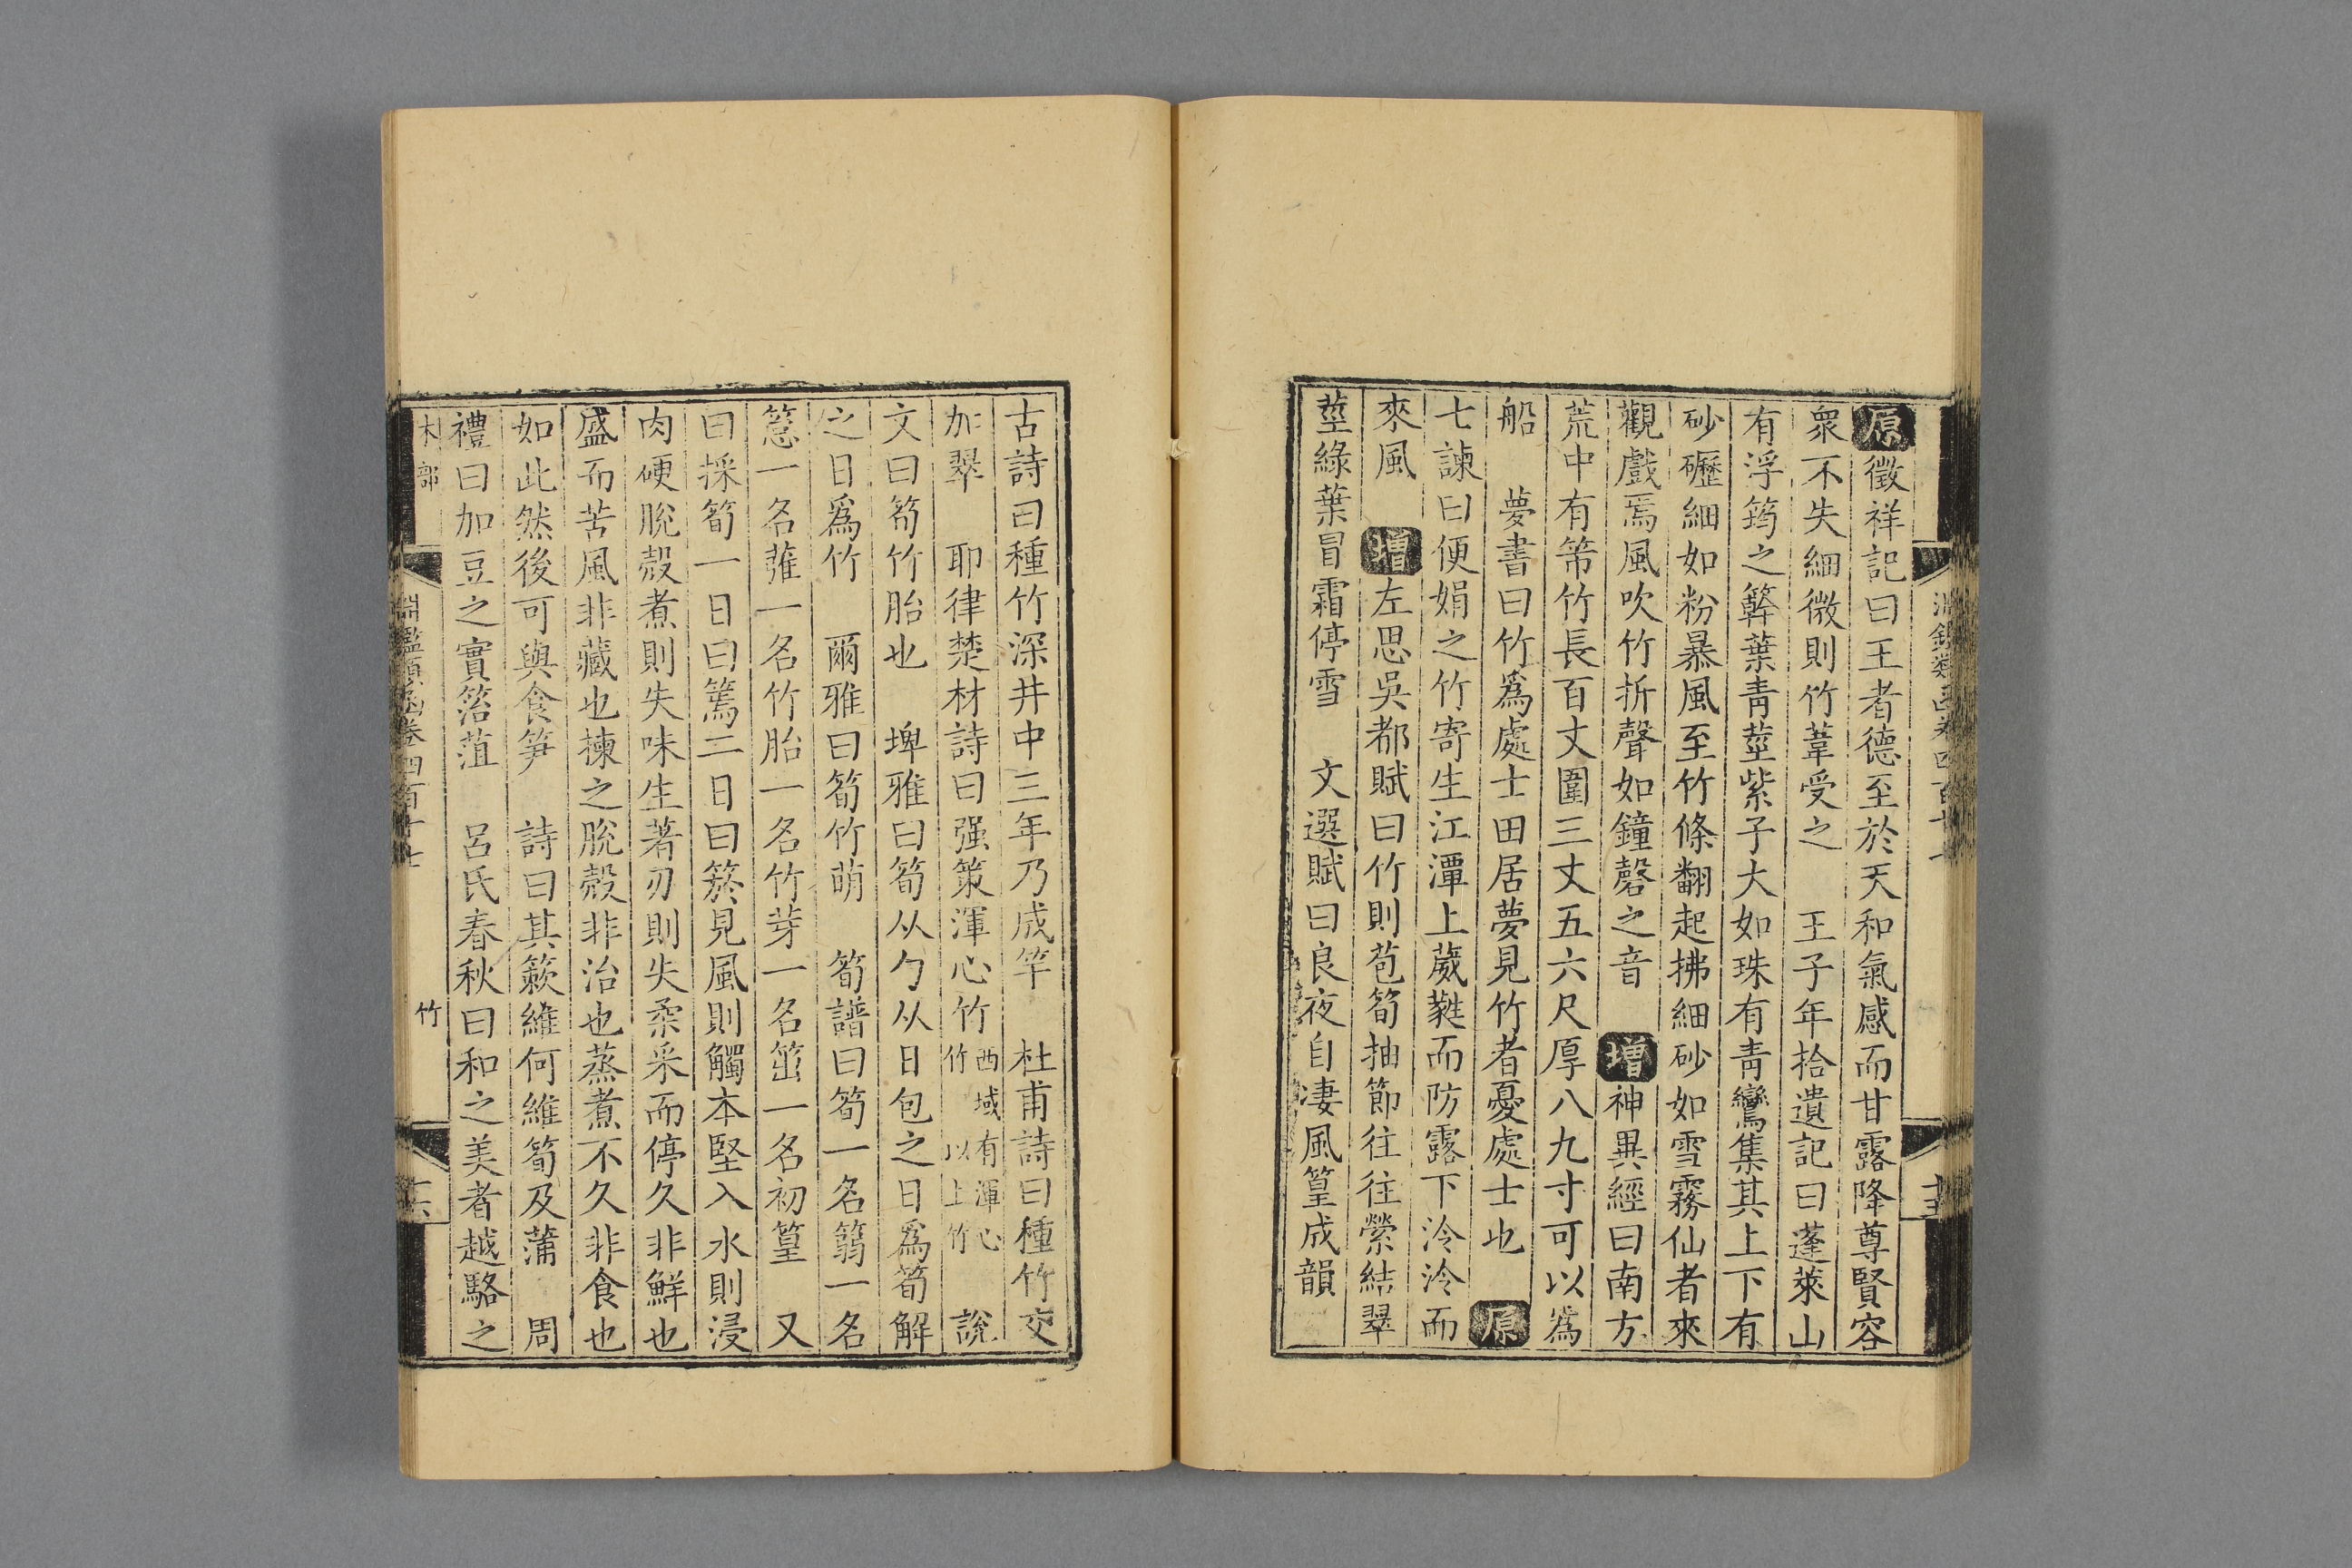 原徵祥記曰王者德至於天和氣感而甘露降尊賢容
衆不失細微則竹葦受之　王子年拾遺記曰蓬萊山
有浮筠之簳葉青莖紫子大如珠有青鸞集其上下有
砂礰細如粉暴風至竹條翻起拂細砂如雪霧仙者來
觀戲焉風吹竹折聲如鐘磬之音　增神異經曰南方
荒中有箒竹長百丈圍三丈五六尺厚八九寸可以爲
船　夢書曰竹爲處士田居夢見竹者憂處士也　原
七諫曰便娟之竹寄生江潭上葳蕤而防露下泠泠而
來風　增左思吳都賦曰竹則苞筍抽節往往縈結翠
莖綠葉冒霜停雪　文選賦曰良夜自凄風篁成韻
古詩曰種竹深井中三年乃成竿　杜甫詩曰種竹交
加翠　耶律楚材詩曰强策渾心竹西域有渾心竹　以上竹　說
文曰筍竹胎也　埤雅曰筍从勹从日包之日爲筍解
之日爲竹　爾雅曰筍竹萌　筍譜曰筍一名篛一名
篃一名䕠一名竹胎一名竹芽一名茁一名初篁　又
曰採筍一日曰蔫二日曰箊見風則觸本堅入水則浸
肉硬脫殼煮則失味生著刃則失柔采而停久非鮮也
盛而苦風非藏也揀之脫殼非治也蒸煮不久非食也
如此然後可與食笋　詩曰其簌維何維筍及蒲　周
禮曰加豆之實箈菹　呂氏春秋曰和之美者越駱之
木部
淵鑑類函卷四百十七
竹
十六